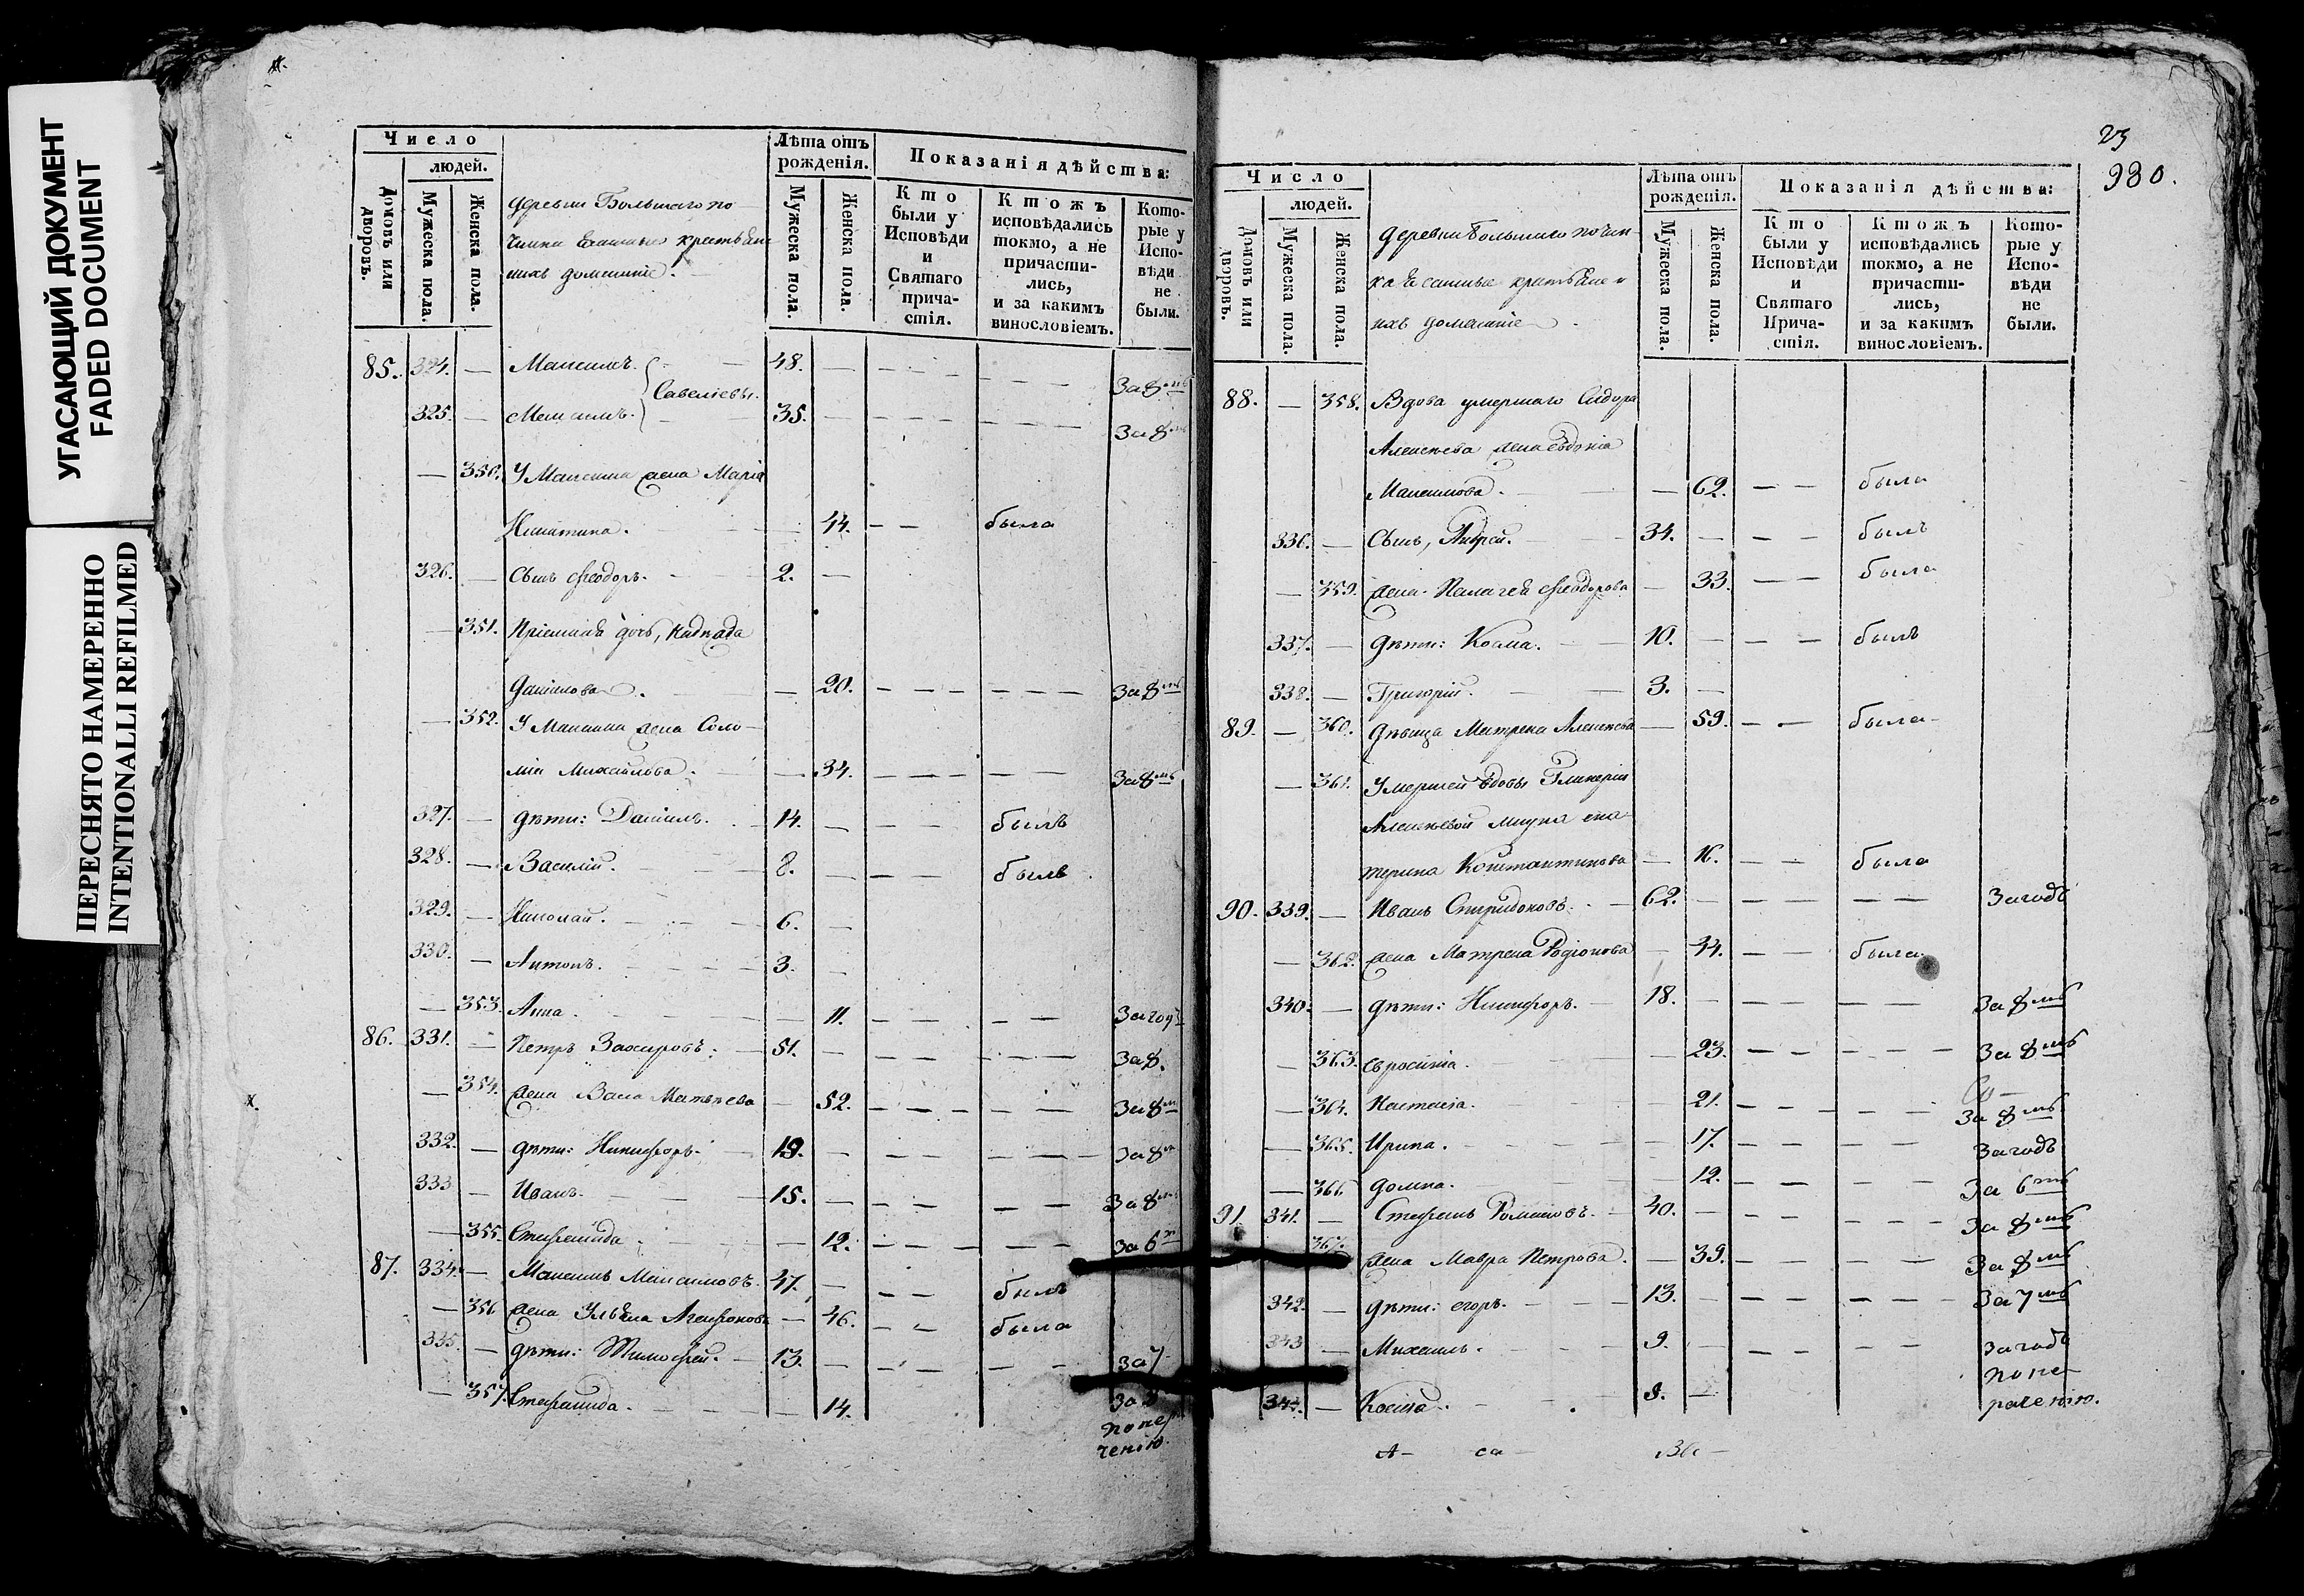 УГАСАЮЩИЙ ДОКУМЕНТ
FADED DOCUMENT
ПЕРЕСНЯТО НАМЕРЕННО
INTENTIONALLI REFILMED
Число
людей.
Домовъ или дворовъ.
Мужеска пола.
Женска пола.
деревни Большаго по-
чинка Ясашные крестьяне
ихъ домашніе.
Лѣта отъ рожденія.
Мужеска пола.
Женска пола.
Показанія дѣйства:
Кто были у Исповѣди и Святаго причастія.
Ктожъ исповѣдались токмо, а не причастились, и за какимъ винословіемъ.
Которые у Исповѣди не были.
85. 324. — Максимъ. 48. — За 8мь
Савеліевы.
325. — 35. — За 8мь
— 350. У Максима жена Марія
Никитина. — 44. — — была
326. — Сынъ Ѳеодоръ. 2. —
— 351. Пріемная дочь,
Данилова. — 20. — За 8мь
— 352. жена Соло-
мія Михайлова. — 34. — За 8мь
327. — дѣти: Даніилъ. 14. — — былъ
328. — Василій. 8. — — былъ
329. — Николай. 6. —
330. — Антонъ. 3. —
— 353. Анна. — 11. — За годъ
86. 331. — Петръ Захаровъ. 51. — За 8.
— 354. жена Васа Матвѣева — 52. — За 8м
332. — дѣти: Никифоръ. 19. — За 8м
333 — Иванъ. 15. — За 8мь
— 355. Стефанида. — 12. — За 6т
87. 334. — Максимъ Максимовъ. 47. — былъ
— 356 жена Ульяна Агафонова — 46. — была
335. — дѣти: Тимофей. 13. — За 7
— 357. Стефанида. — 14. За
чению.
23
980.
Число
людей.
Домовъ или дворовъ.
Мужеска пола.
Женска пола.
деревни большаго почин-
ка Ясашные крестьяне и
ихъ домашніе
Лѣта отъ рожденія.
Мужеска пола.
Женска пола.
Показанія дѣйства:
Кто были у Исповѣди и Святаго Причастія.
Ктожъ исповѣдались токмо, а не причастились, и за какимъ винословіемъ.
Которые у Исповѣди не были.
88. — 358. Вдова умершаго Сидора
Алексѣева жена Евдокіа
Максимова. — 62. — — была
336. — Сынъ, Андрей. 34. — — — былъ
— 359. жена Пелагея Ѳеодорова — 33. — — была
337. — дѣти: Косма. 10. — — — былъ
338. — Григорій. 3. —
89. — 360. дѣвица Матрена Алексѣева — 59. — — была
— 361. Умершей вдовы Гликеріи
Алексѣевой внука Ека-
терина Константинова — 16. — — была
90. 339. — Иванъ Спиридоновъ. 62. — За годъ
— 362. жена Матрена Родіонова — 44. — — была.
340. — дѣти: Никифоръ. 18. — За 8мь
— 363. Евросинія. — 23. — За 8мь
— 364. Настасіа. — 21. — За 8мь
— 365. Ирина. — 17. — За годъ
— 366 Домна. — 12. — За 6ть
91. 341. — Стефанъ Романовъ. 40. — За 8мь
367. жена Мавра Петрова. — 39. — За 8мь
342. — дѣти: Егоръ. 13. — За 7мь
343 — Михаилъ. 9. — За годъ
344. — Косма. 8. — по не-
радению.